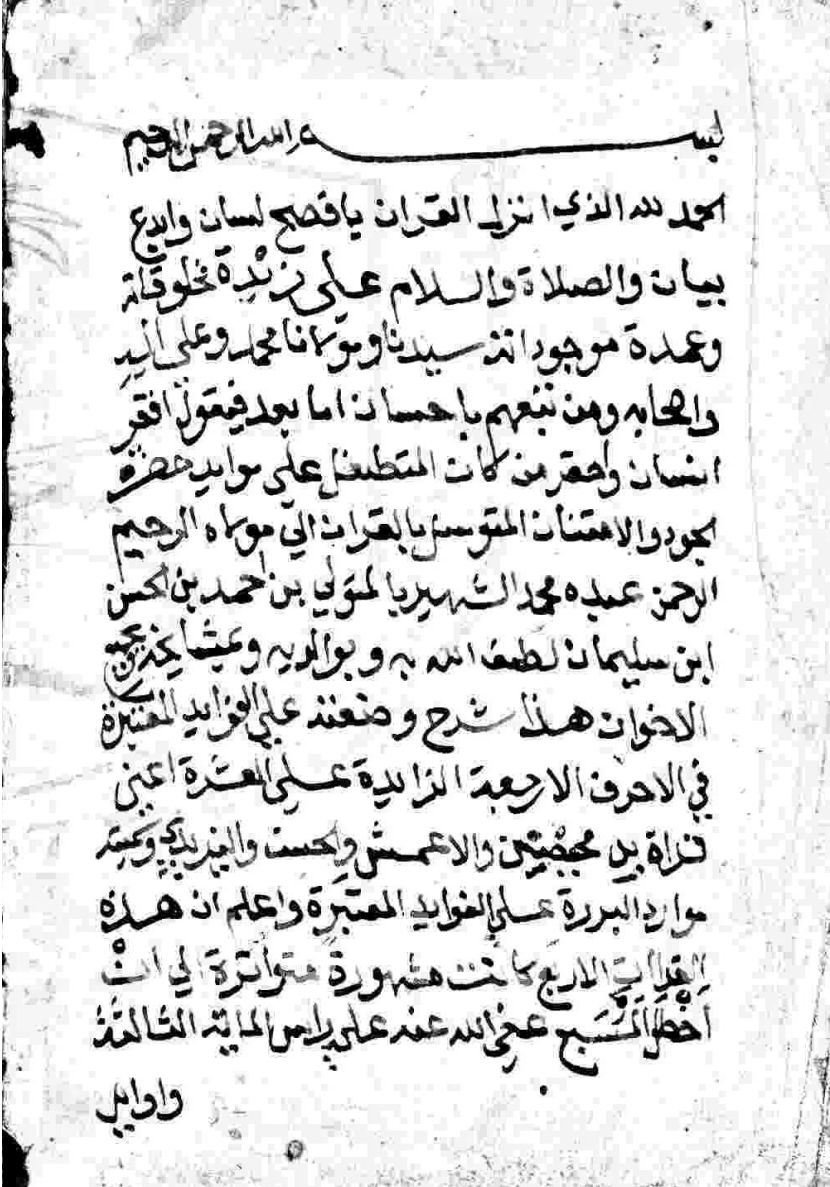 بسم الله الرحمن الرحيم
الحمد لله الذي انزل القران بافصح لسان وابدع
بيان والصلاة والسلام على زبدة مخلوقاته
وعمدة موجوداته سيدنا ومولانا محمد وعلى اله
واصحابه ومن تبعهم باحسان اما بعد فيقول افقر
انسان واحقر من كان المتطفل على موايد حضرة
الجود والامتنان المتوسل بالقران الي مولاه الرحيم
الرحمن عبده محمد الشهير بالمتولي بن احمد بن الحسن
ابن سليمان لطف الله به وبوالديه وبمشايخه وبجميع
الاخوان هذا شرح وضعته علي الفوايد المعتبرة
في الاحرف الاربعة الزايدة على العشرة اعني
قراة بن محيصن والاعمش والحسن واليزيدي وسميته
موارد البررة على الفوايد المعتبرة واعلم ان هذه
القراات الاربع كانت مشهورة متواترة الي ان
المسبع عفى الله عنه على راس الماية الثالثة
واوايل